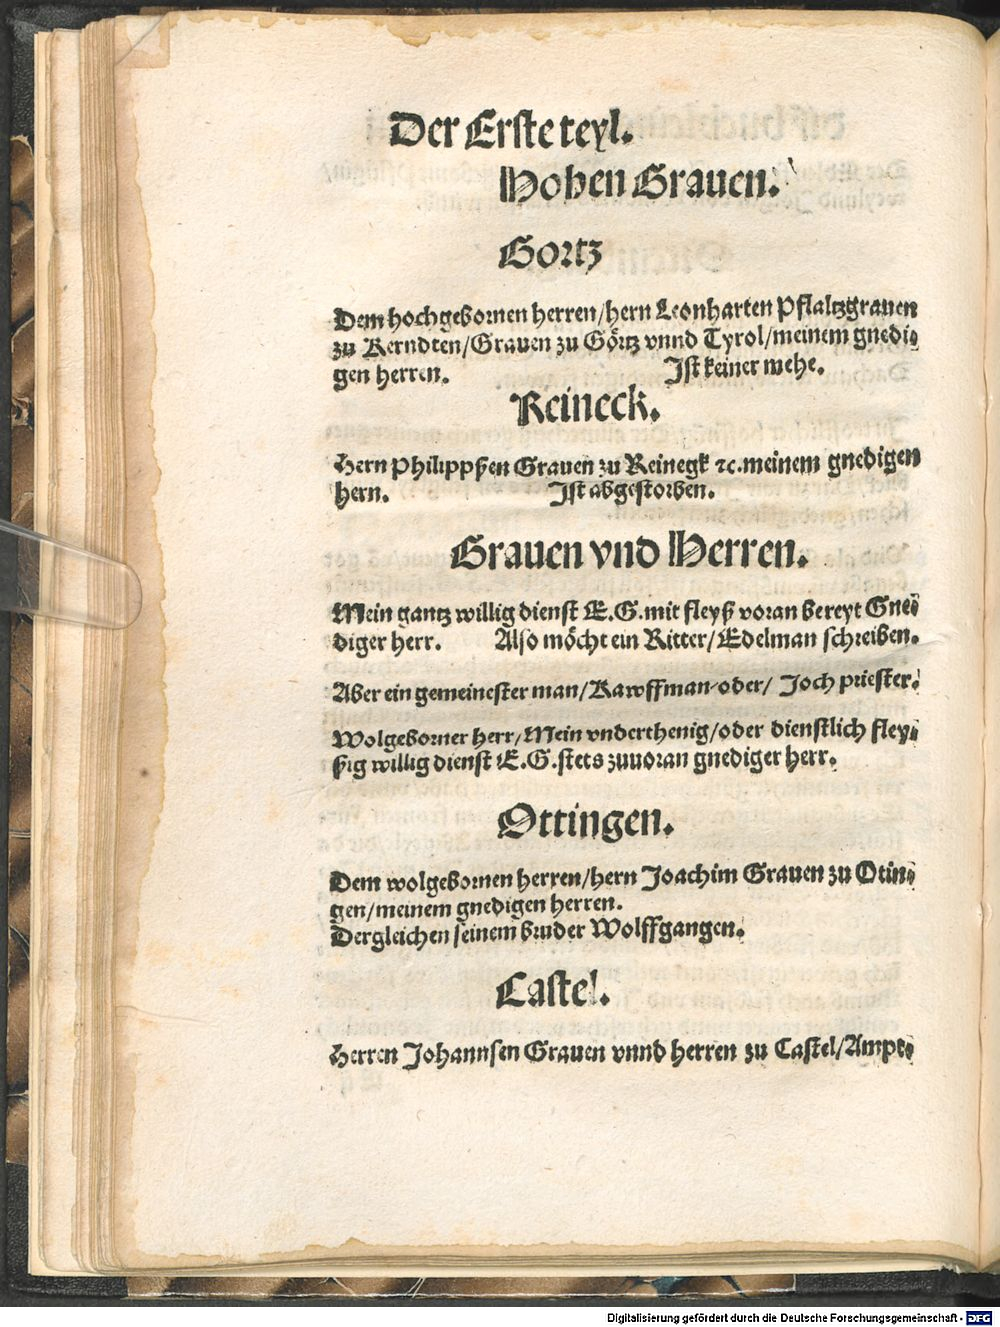 Der Erste teyl.
Hohen Grauen.
Gortz
Dem hochgebornen herren/hern Leonharten Pflaltzgrauen
zu Kerndten/Grauen zu Görtz vnnd Tyrol/meinem gnedi⸗
gen herren. Ist keiner mehe.
Reineck.
Hern Philippßen Grauen zu Reinegk ⁊c. meinem gnedigen
hern. Ist abgestorben.
Grauen vnd Herren.
Mein gantz willig dienst E.G. mit fleyß voran bereyt Gne⸗
diger herr. Also möcht ein Ritter/Edelman schreiben.
Aber ein gemeinester man/Kawffman oder/ Joch priester.
Wolgeborner herr/Mein vnderthenig/oder dienstlich fley⸗
ßig willig dienst E.G. stets zuuoran gnediger herr.
Ottingen.
Dem wolgebornen herren/hern Joachim Grauen zu Otin⸗
gen/meinem gnedigen herren.
Dergleichen seinem bruder Wolffgangen.
Castel.
Herren Johannsen Grauen vnnd herren zu Castel/Ampt⸗
Digitalisierung gefördert durch die Deutsche Forschungsgemeinschaft - DFG